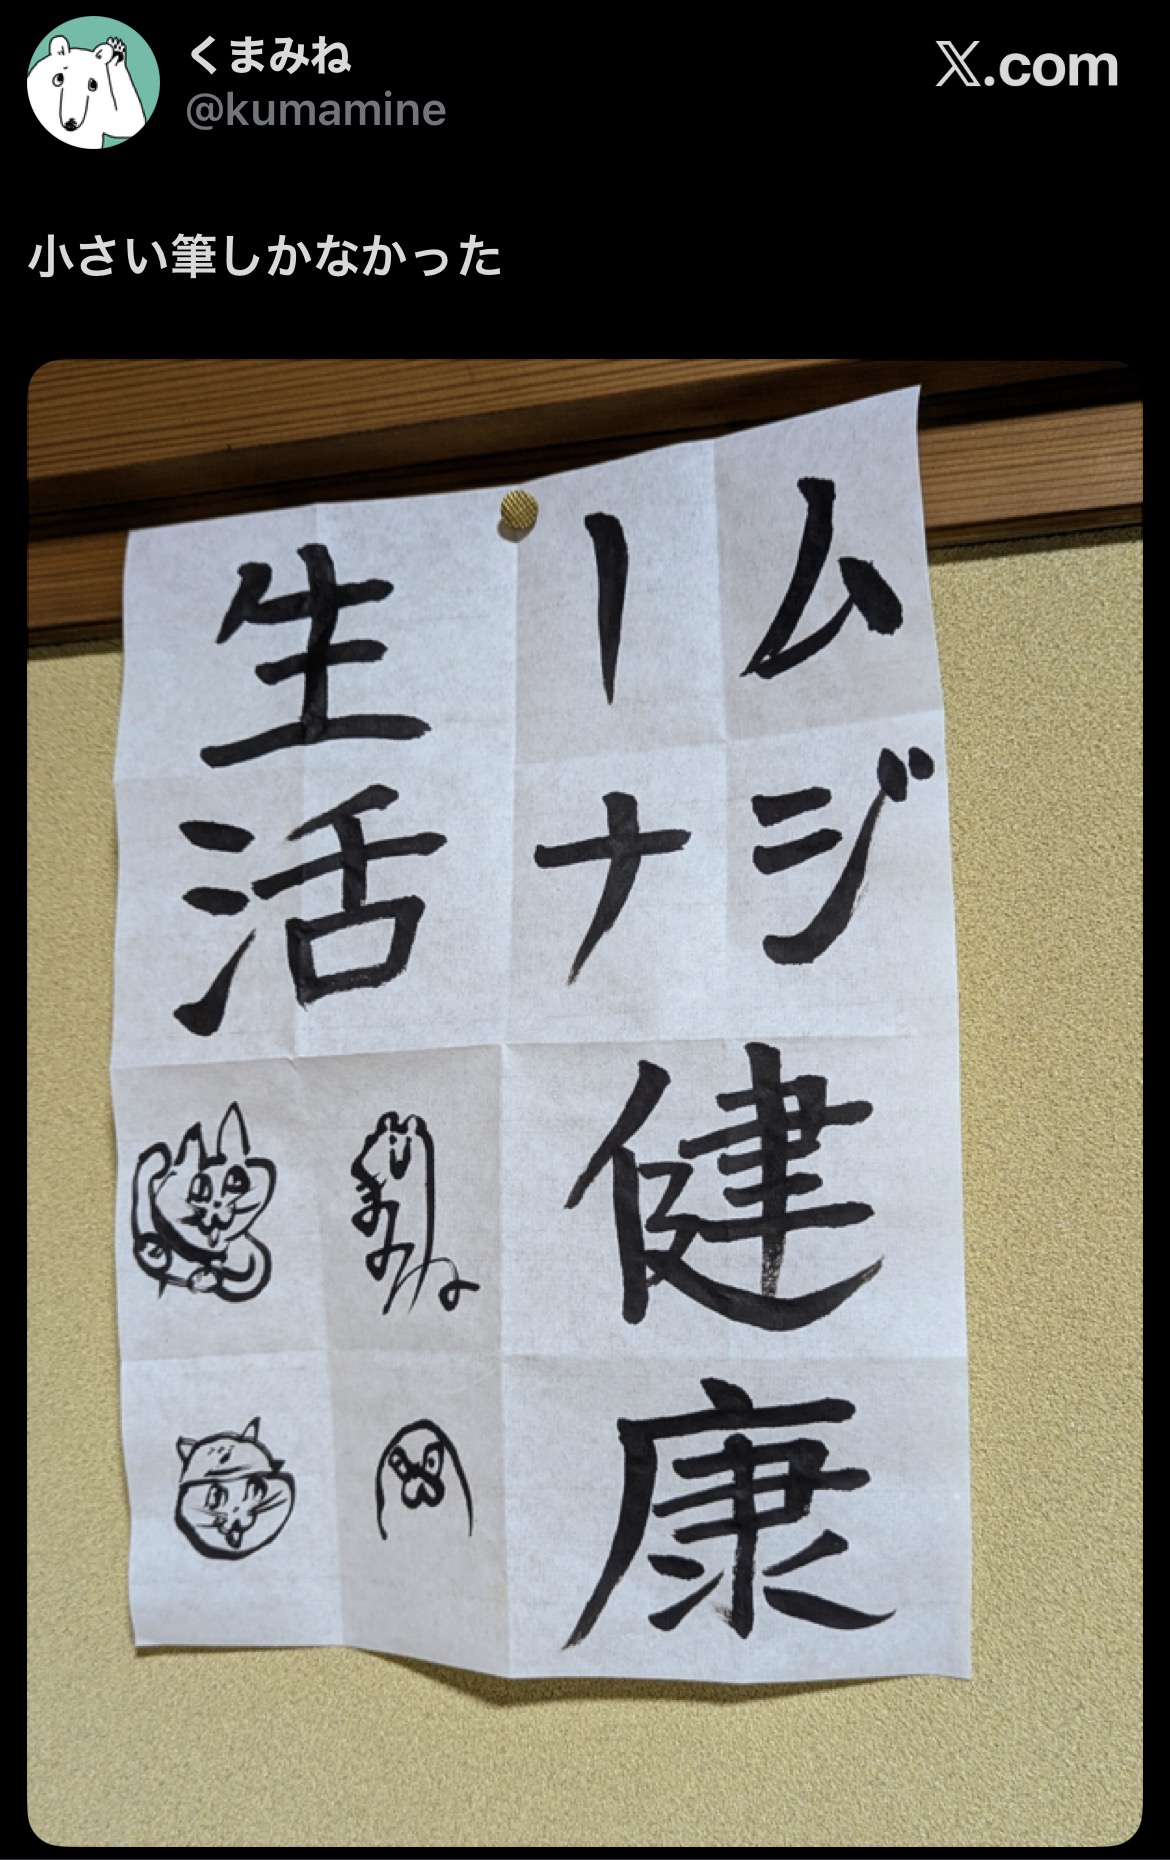 くまみね
@kumamine
X.com
小さい筆しかなかった
ムジ
ーナ
健康
生活
くまみね